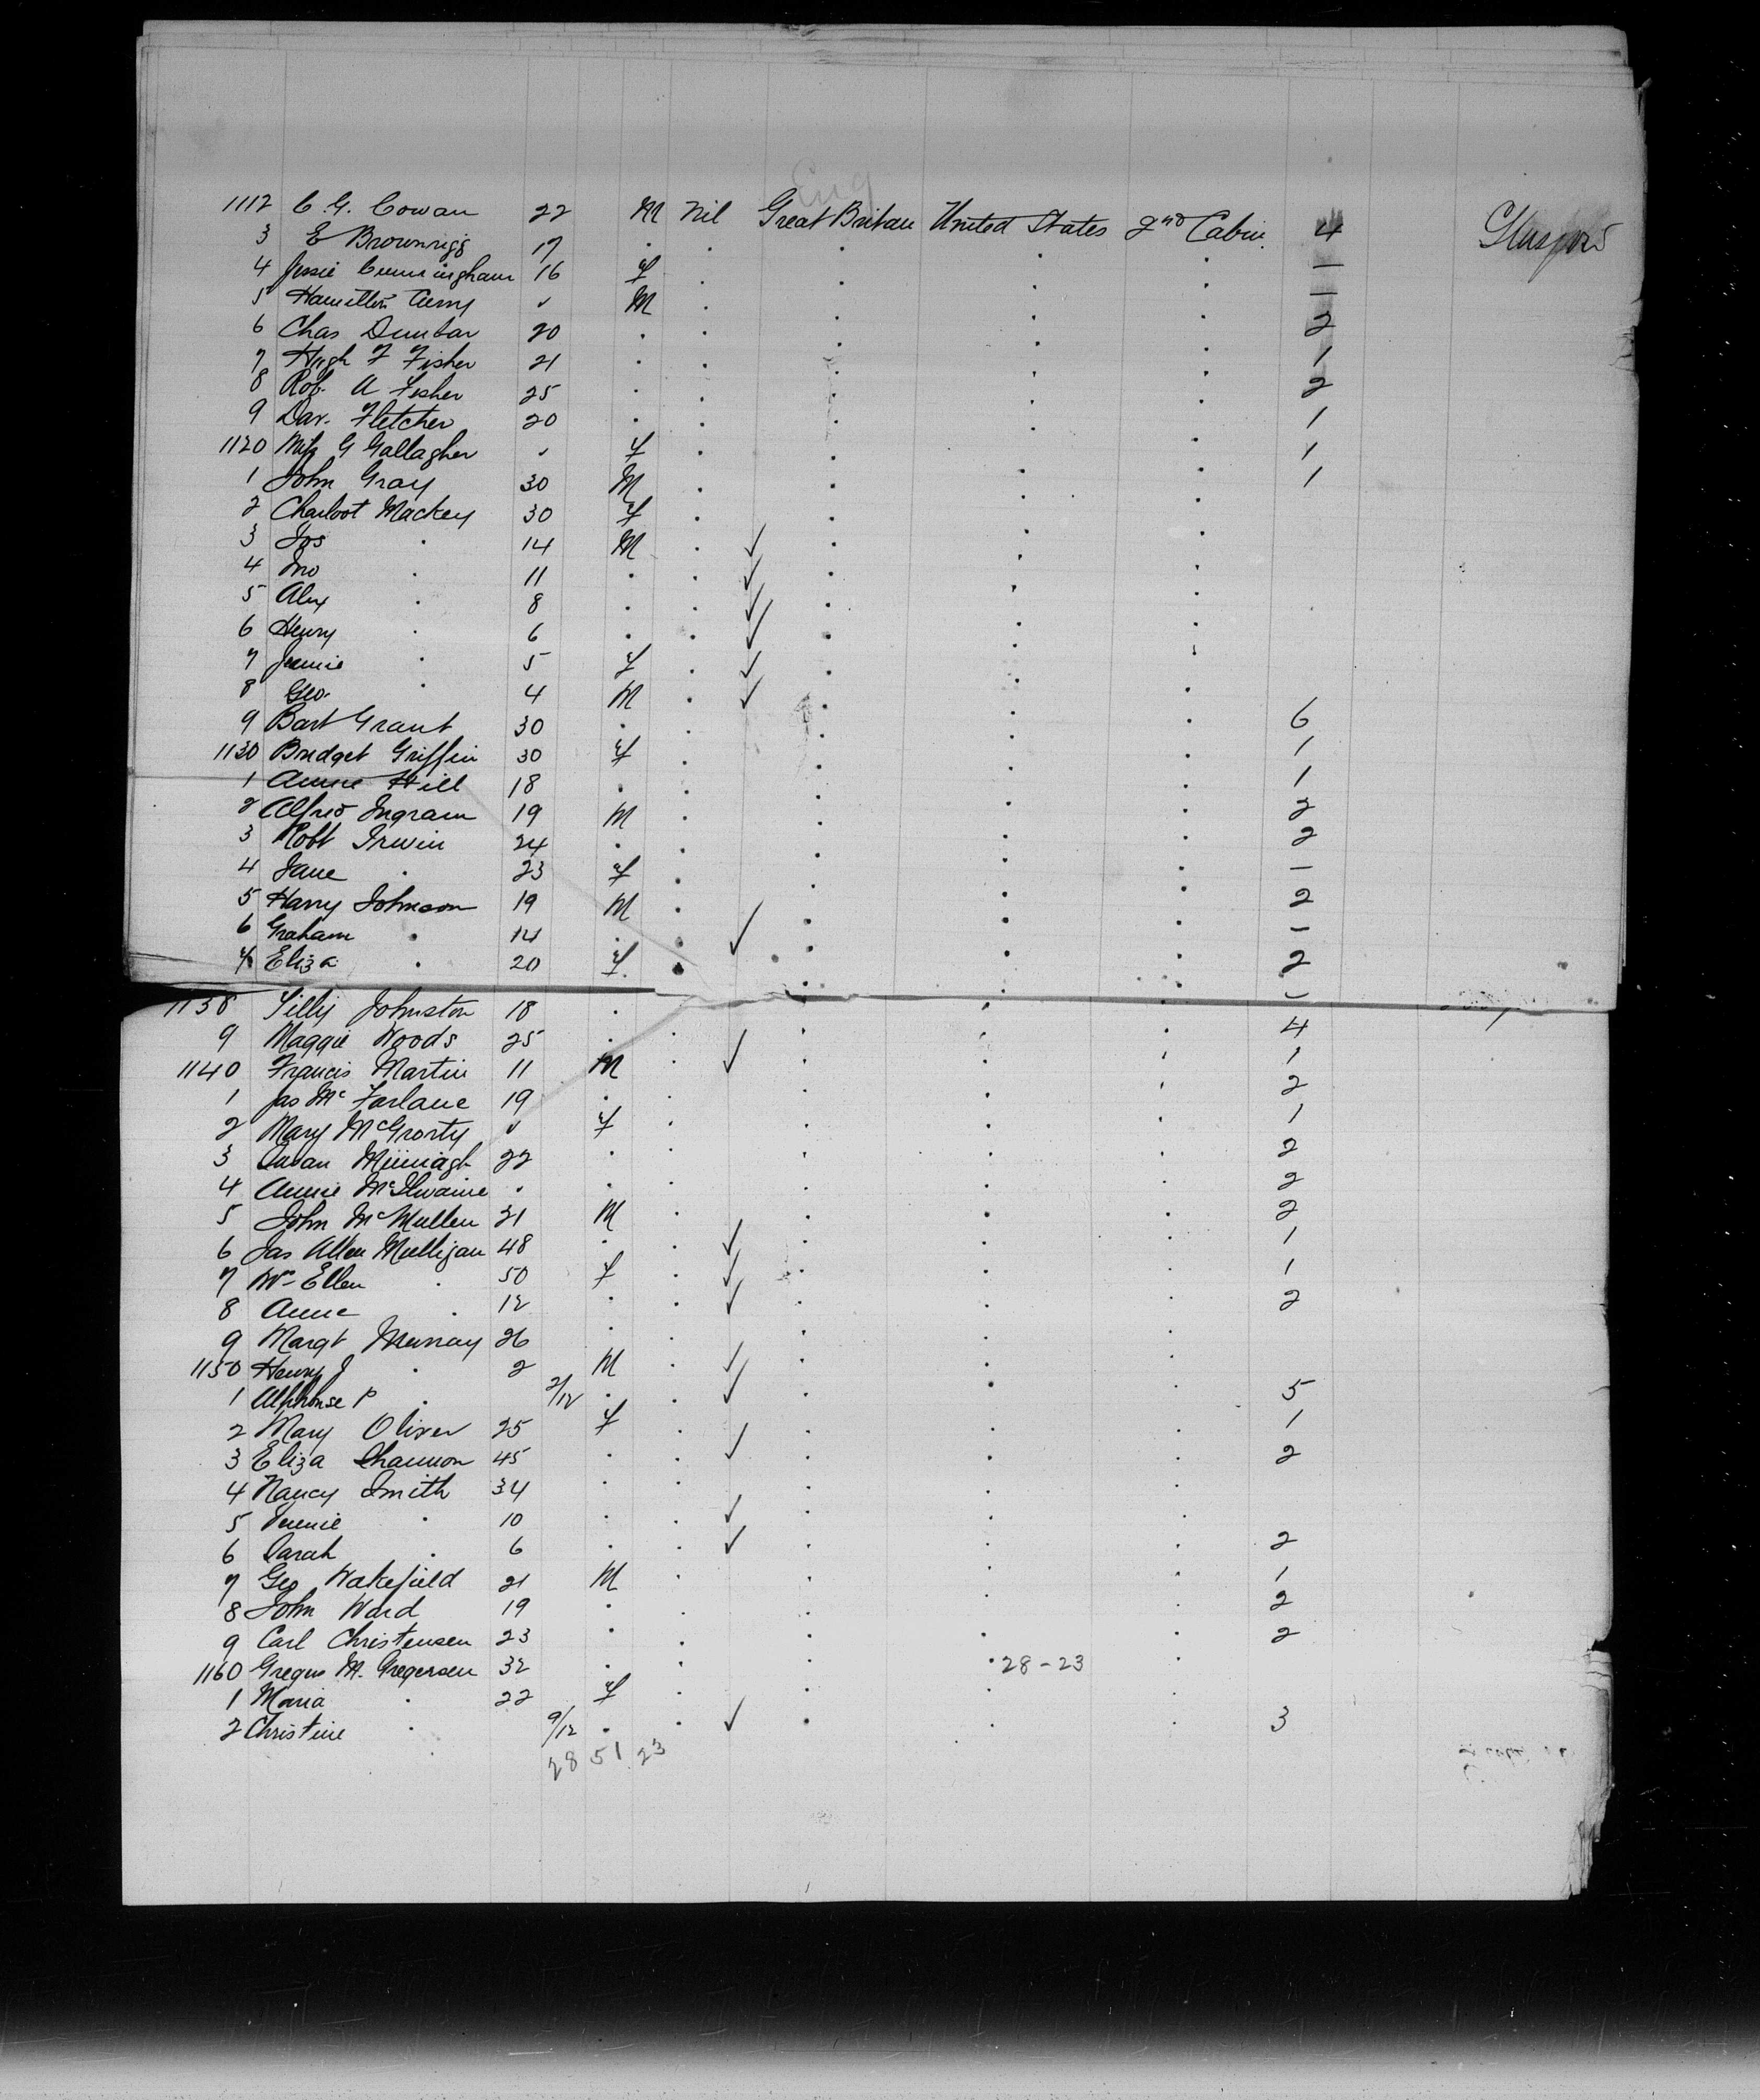 Eng
1112 C. G. Cowan 22 M Nil Great Britain United States 2nd Cabin. 4 Glasgow
3 E Brownrigg 17 . . . . . —
4 Jessie Cunningham 16 f . . . . —
5 Hamilton " M . . . . 2
6 Chas Dunbar 20 . . . . . 1
7 Hugh F Fisher 21 . . . . . 2
8 Rob. A Fisher 25 . . . . . 1
9 Dav. Fletcher 20 . . . . . 1
1120 G Gallagher " f . . . . 1
1 John Gray 30 M . . . .
2 Charloot Mackey 30 f . . . .
3 Jos . 14 M . ✓ . . .
4 Jno . 11 . . ✓ . . .
5 Alex . 8 . . ✓ . . .
6 Henry . 6 . . ✓ . . .
7 Jennie . 5 f . ✓ . . .
8 Geo. . 4 M . ✓ . . . 6
9 Bart Grant 30 . . . . . 1
1130 Bridget Griffin 30 f . . . . 1
1 Annie Hill 18 . . . . . 2
2 Alfred Ingram 19 M . . . . 2
3 Robt Irwin 24 . . . . . —
4 Jane . 23 f . . . . 2
5 Harry Johnson 19 M . . . . –
6 Graham . 14 . . ✓ . . . 2
7 Eliza . 20 f . . . . –
1138 Tilly Johnston 18 . . . . 4
9 Maggie Woods 25 . . . . . 1
1140 Francis Martin 11 M . ✓ . . . 2
1 Jas McFarlane 19 . . . . . 1
2 Mary McGrorty " f . . . . 2
3 Susan 22 . . . . . 2
4 Annie McIlwaine . . . . . . 2
5 John McMullen 21 M . . . . 1
6 Jas Allen Mulligan 48 . . ✓ . . . 1
7 Ellen . 50 f . ✓ . . . 2
8 Anne . 12 . . ✓ . . .
9 Margt Murray 26 . . . . .
1150 Henry J . 2 M . ✓ . . .
1 Alphonse P . 2/12 . . ✓ . . . 5
2 Mary Oliver 25 f . . . . 1
3 Eliza Shannon 45 . . ✓ . . . 2
4 Nancy Smith 34 . . . . .
5 Jennie . 10 . . ✓ . . .
6 Sarah . 6 . . ✓ . . . 2
7 Geo Wakefield 21 M . . . . 1
8 John Ward 19 . . . . . 2
9 Carl Christensen 23 . . . . . 2
1160 Gregus M. Gregersen 32 . . . . 28-23 .
1 Maria . 22 f . . . .
2 Christine . 9/12 . . ✓ . . . 3
28 51 23